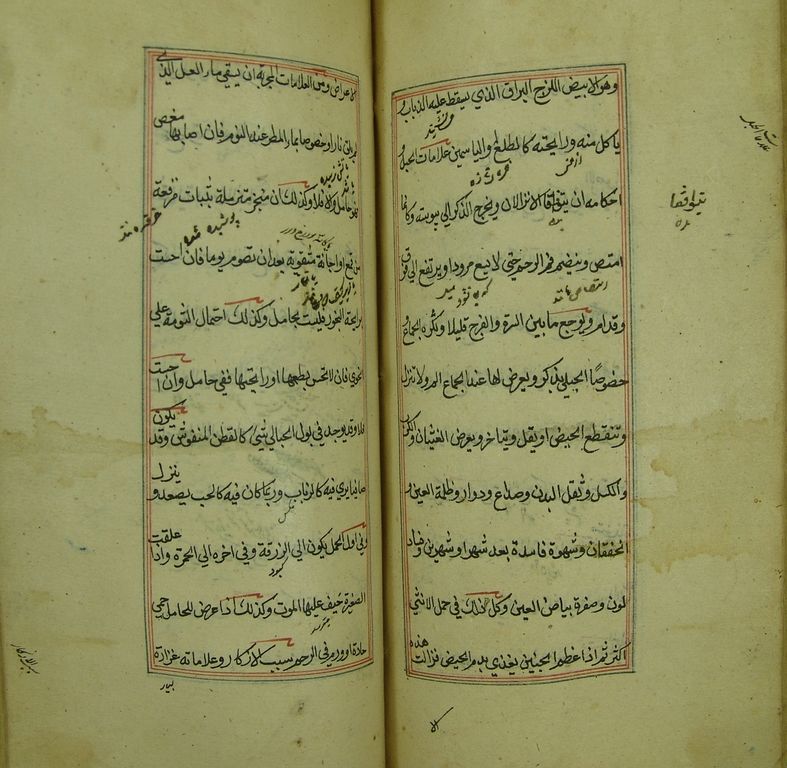 وهو الابيض اللزج البراق الذي يسقط عليه الذباب و
ياكل منه ورايحته كالطلع والياسمين علامات الحبل و
احكامه ان يتوافقا الانزالان ويخرج الذكر الي يبوسة وكانما
امتص وينضم فم الرحم حتي لا يسع مرودا ويرتفع الي فوق
وقدام ويوجع ما بين السرة والفرج قليلا وتكره الجماع
خصوصا الحبلي بذكر ويعرض لها عند الجماع الم ولا تنزل
وتنقطع الحيض او يقل ويتاخر ويعرض الغثيان والكرب
والكسل وثقل البدن وصداع ودوار وظلمة العين و
الخفقان وشهوة فاسدة بعد شهر او شهرين وفساد
لون وصفرة بياض العين وكل ذلك في حمل الانثي
اكثر ثم اذا عظم الجنين يغتذي بدم الحيض فزالت هذه
الا
الاعراض ومن العلامات المجربة ان يسقي ماء العسل الذي
لم يغل نارا وخصوصا بماء المطر عند النوم فان اصابها مغص
فهو حامل والا فلا وكذلك ان متبخرة متزملة بثياب مرفعة
من قمع او اجانة مثقوبة بعد ان تصوم يوما فان احست
برايحة البخور فليست بحامل وكذلك احتمال الثومة علي
الخوي فان لا تحس بطعمها او رايحتها فهي حامل وان احست
فلا وقد يوجد في بول الحبالي شيئ كالقطن المنفوش وقد يكون
صافيا يري فيه كالضباب وربما كان فيه كالحب يصعد وينزل
وفي اول الحمل يكون الي الزرقة وفي اخره الي الحمرة واذا علقت
الصغيرة خيف عليها الموت وكذلك اذا عرض للحامل حمي
حادة او ورم في الرحم سبب الاذكار وعلاماته غزارة